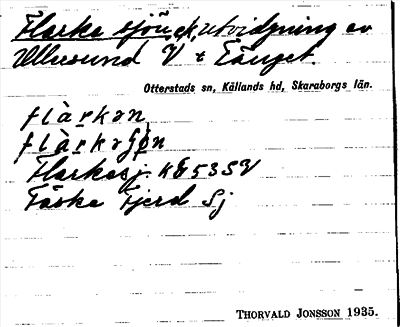 Flarka sjön, utvidgning av
Ullersund V t Tånget.
Otterstads sn, Källands hd, Skaraborgs län.
flàrkan
flàrkaʃøn
Flarkasj. KE53SV
Fjerd Sj
THORVALD JONSSON 1935.